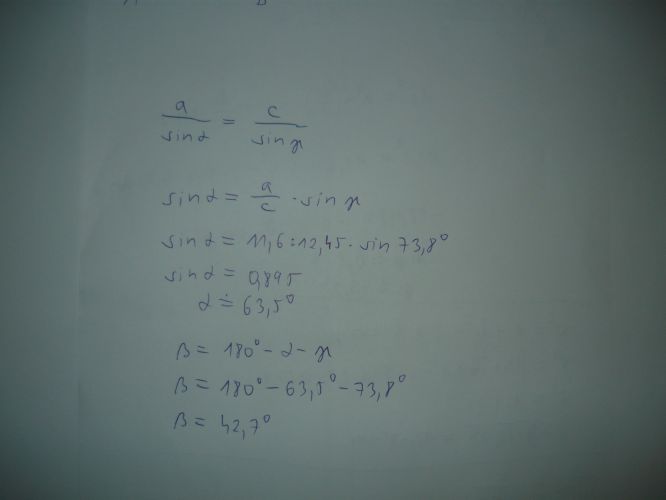 a/sin α = c/sin γ
sin α = a/c · sin γ
sin α = 11,6 : 12,45 · sin 73,8°
sin α = 0,895
α ≐ 63,5°
β = 180° - α - γ
β = 180° - 63,5° - 73,8°
β = 42,7°